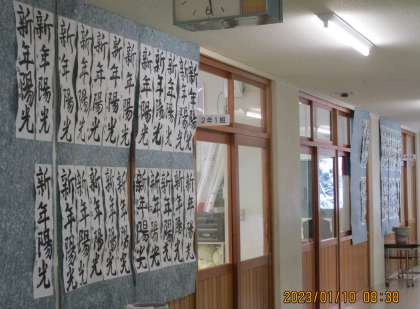 新年陽光
新年陽光
新年陽光
新年陽光
新年陽光
新年陽光
新年陽光
新年陽光
新年陽光
新年陽光
新年陽光
新年陽光
新年陽光
新年陽光
新年陽光
新年陽光
新年陽光
新年陽光
新年陽光
新年陽光
新年陽光
新年陽光
新年陽光
2年1組
2023/01/10 08:38